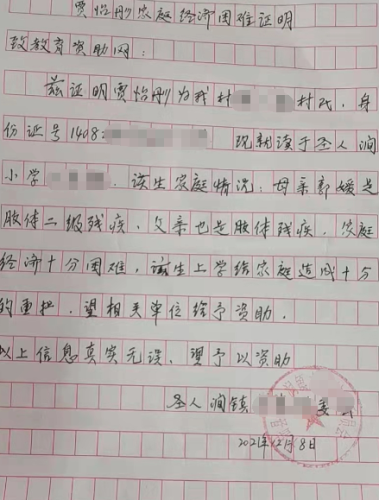 贾怡彤家庭经济困难证明
致教育资助网：
兹证明贾怡彤为我村村民，身
份证号1408 现就读于圣人涧
小学 ，该生家庭情况：母亲郭媛是
肢体二级残疾，父亲也是肢体残疾，家庭
经济十分困难，该生上学给家庭造成十分
的重担，望相关单位给予资助。
以上信息真实无误，望予以资助
圣人涧镇 委
2021年12月8日